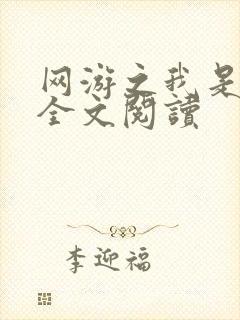 网游之我是
全文閱讀
李迎福